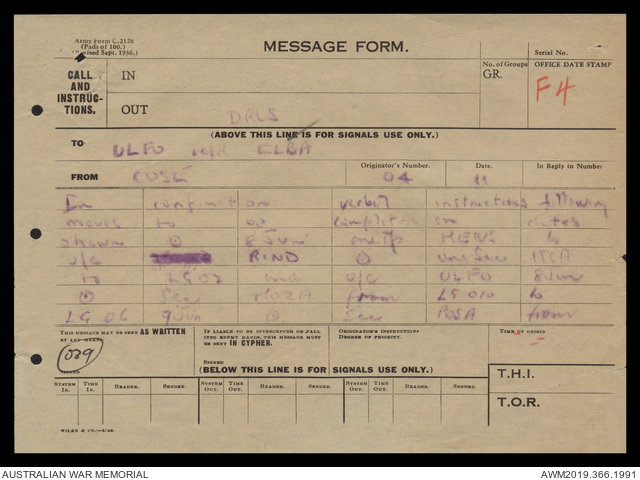 Army Form C.2128
(Pads of 100.)
(Revised Sept. 1936.)
MESSAGE FORM.
Serial No.
CALL AND INSTRUCTIONS.
IN
No. of Groups
GR.
OFFICE DATE STAMP
F4
OUT
DRLS
(ABOVE THIS LINE IS FOR SIGNALS USE ONLY.)
TO
ULFO ELBA
FROM
Originator's Number.
Date.
In Reply to Number.
04
11
In confirmation verbal instructions following
moves to be completed on dates
shown 8 Jun one to
u/c RIND one Sec ITSA
to LG 07 and u/c ULFO 8 Jun
Sec MOZA from LG 010 to
LG 06 9 Jun Sec POSA from
THIS MESSAGE MAY BE SENT AS WRITTEN
BY ANY MEANS.
IF LIABLE TO BE INTERCEPTED OR FALL
INTO ENEMY HANDS, THIS MESSAGE MUST
BE SENT IN CYPHER.
ORIGINATOR'S INSTRUCTIONS
DEGREE OF PRIORITY.
TIME OF ORIGIN
SIGNED
SIGNED
(BELOW THIS LINE IS FOR SIGNALS USE ONLY.)
T.H.I.
T.O.R.
SYSTEM IN. TIME IN. READER. SENDER. SYSTEM OUT. TIME OUT. READER. SENDER. SYSTEM OUT. TIME OUT. READER. SENDER.
AUSTRALIAN WAR MEMORIAL
AWM2019.366.1991